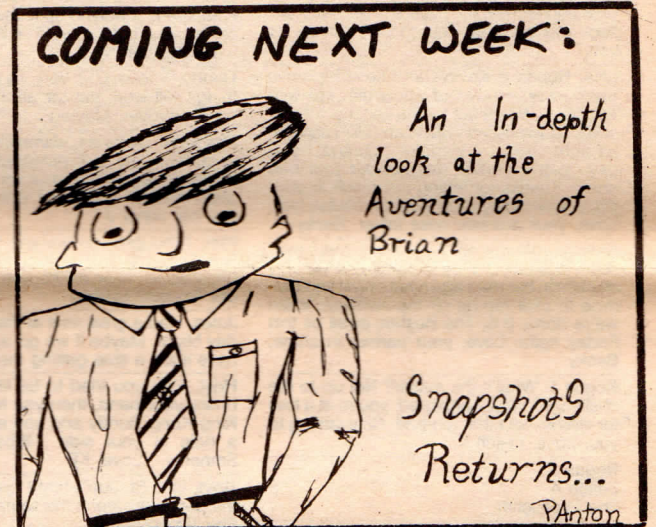 COMING NEXT WEEK:
An In-depth
look at the
Aventures of
Brian
SnapshotS
Returns...
PAnton